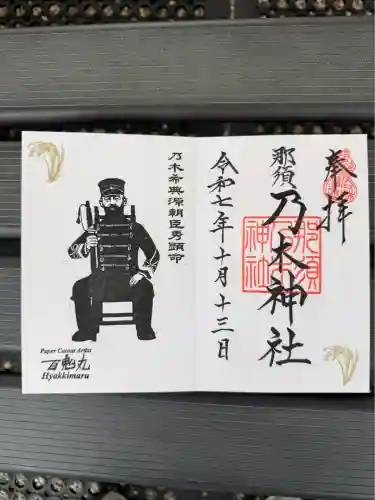 奉拝
那須
乃木神社
那須
乃木
神社
令和七年十月十三日
乃木希典源朝臣秀顕命
Paper Cutout Artist
百鬼丸
Hyakkimaru